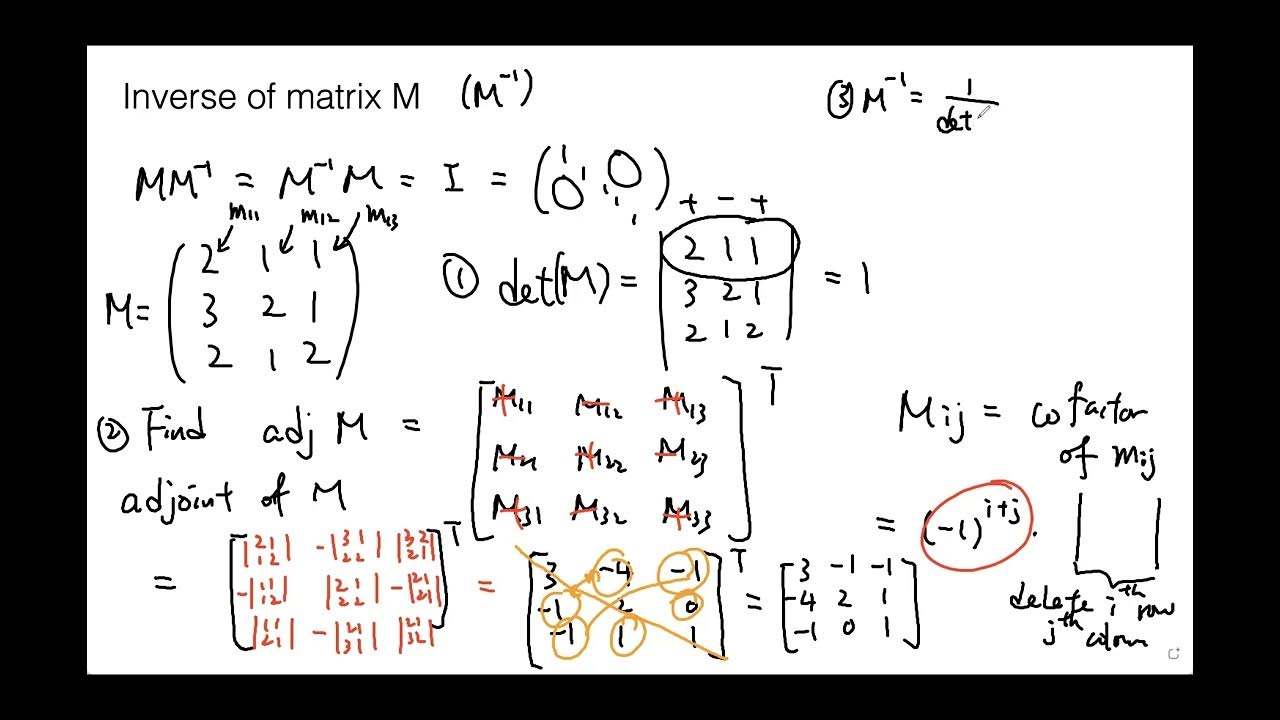 Inverse of matrix M (M⁻¹)
③ M⁻¹ = 1/det
MM⁻¹ = M⁻¹M = I = (1 1 1 1 0 0)
m11 m12 m13
M= (2 1 1
3 2 1
2 1 2)
① det(M) = |2 1 1| = 1
+ - +
3 2 1
2 1 2
② Find adj M = [M11 M12 M13]T
M21 M22 M23
M31 M32 M33
adjoint of M
Mij = cofactor
of mij
= (-1)^(i+j) .
delete i-th row
j-th colum
= [|2 1; 1 2| -|3 1; 2 2| |3 2; 2 1|]T
-|1 1; 1 2| |2 1; 2 2| -|2 1; 2 1|
|1 1; 2 1| -|2 1; 3 1| |2 1; 3 2|
= [3 -4 -1]T
-1 2 0
-1 1 1
= [3 -1 -1]
-4 2 1
-1 0 1